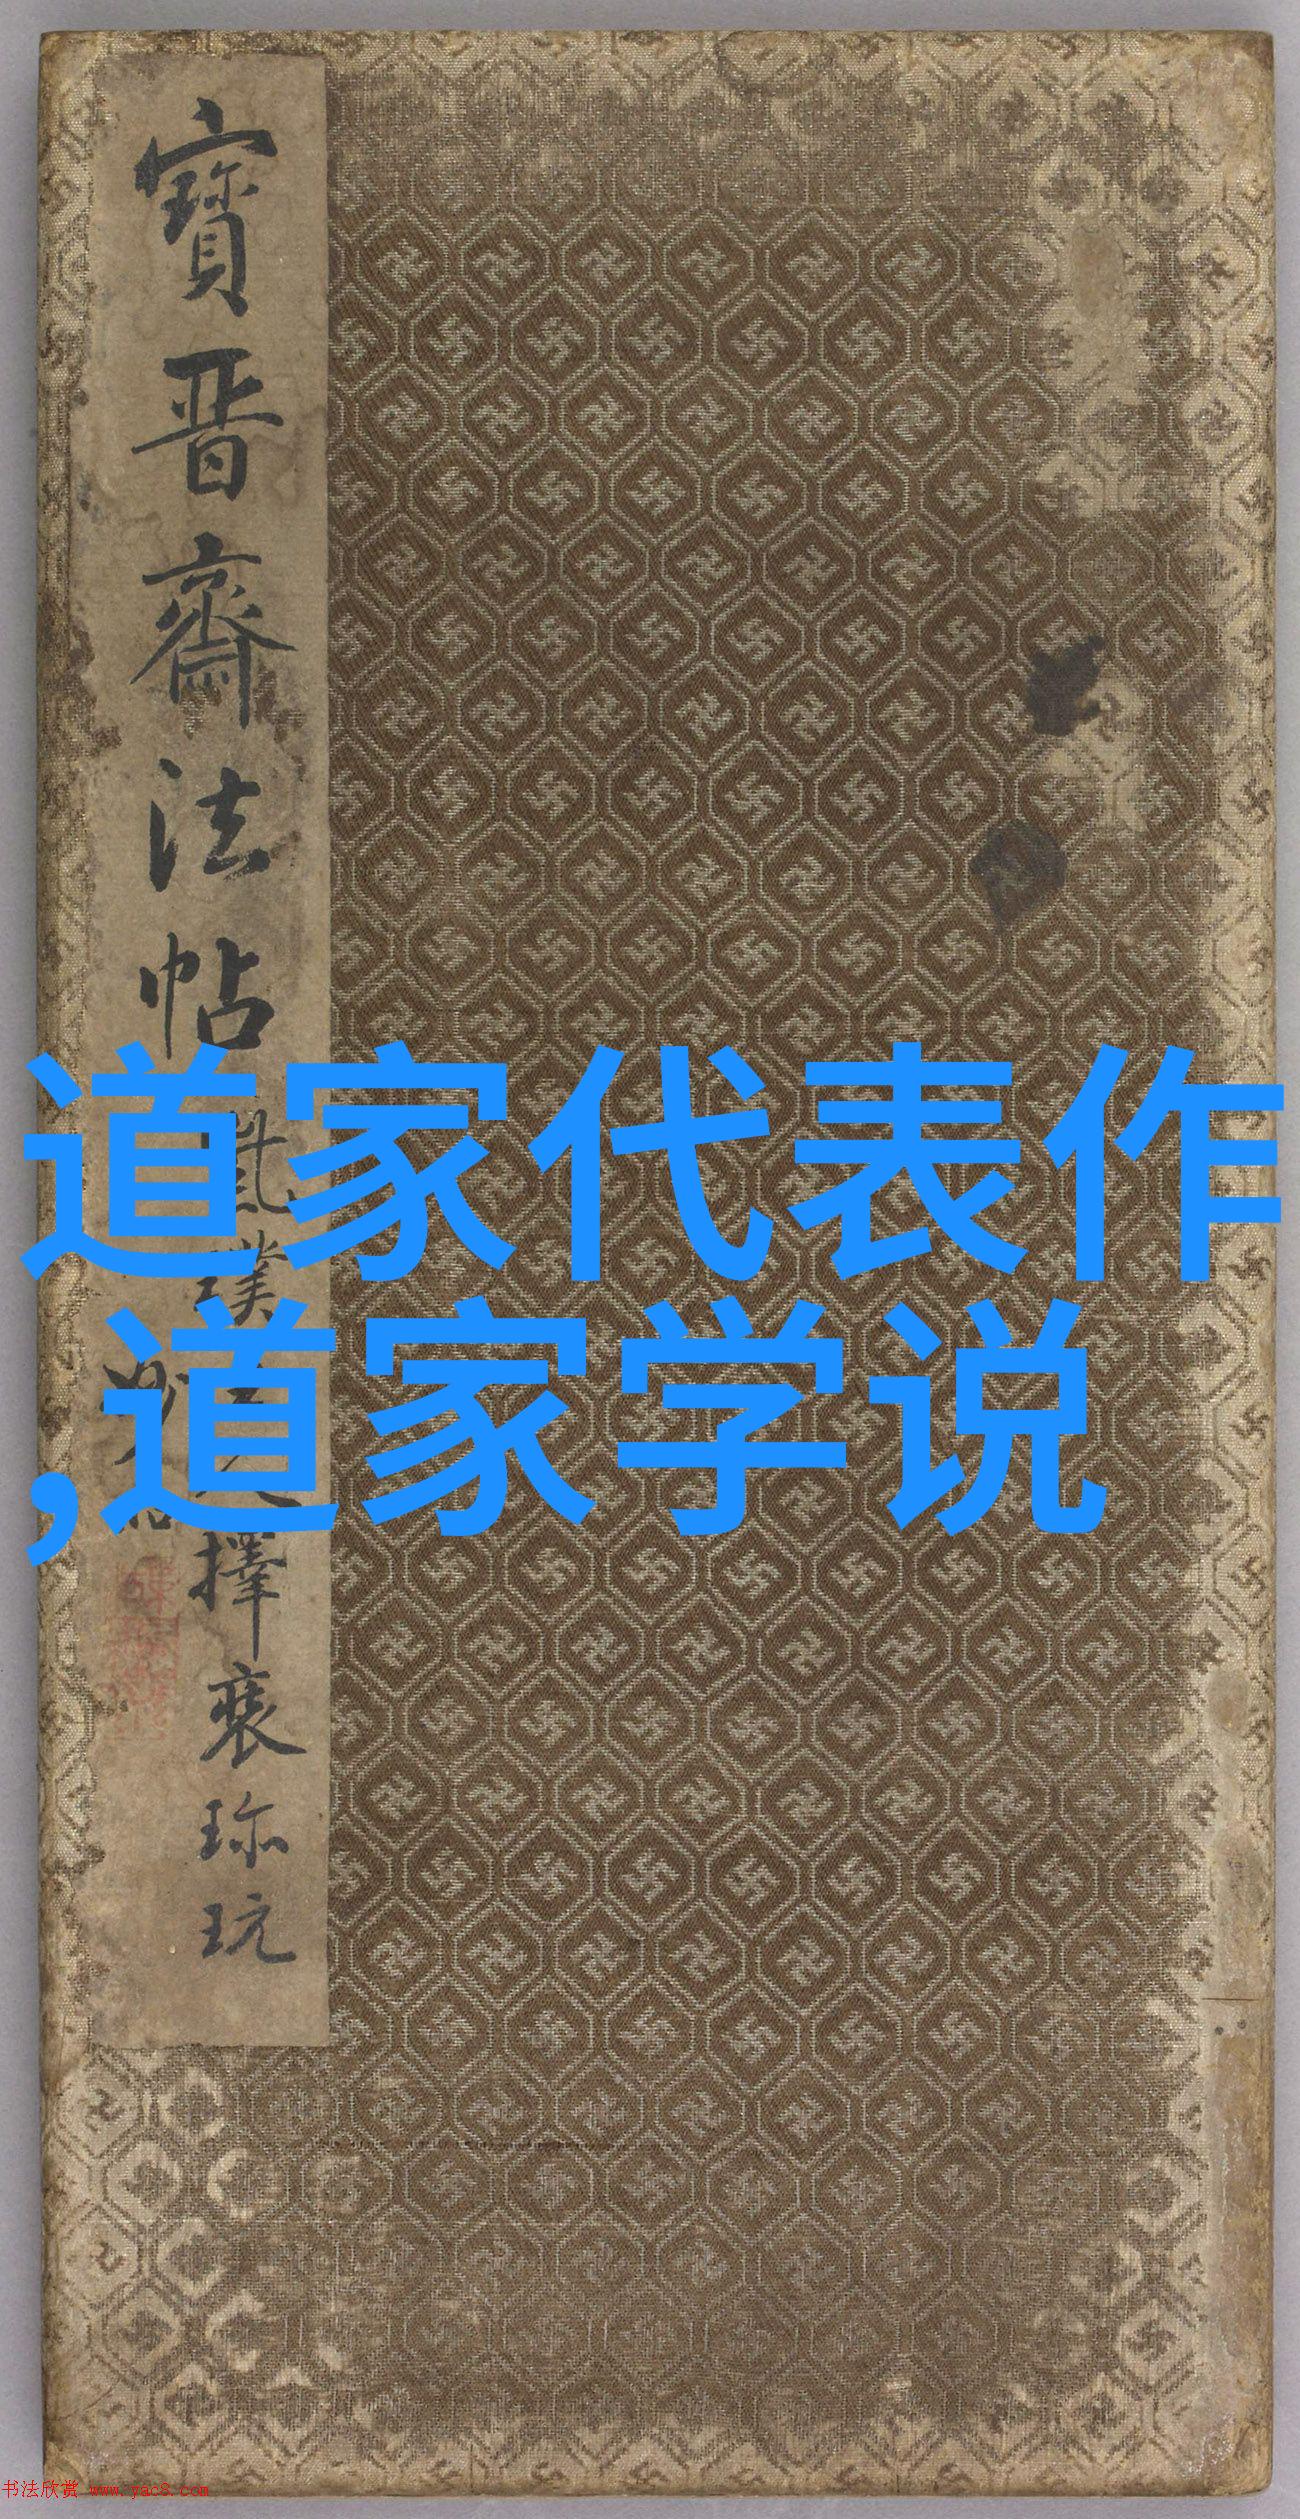 寶晋齋法帖
擇裒珎玩
道家代表作
,道家学说
书法欣赏 www.yac8.com